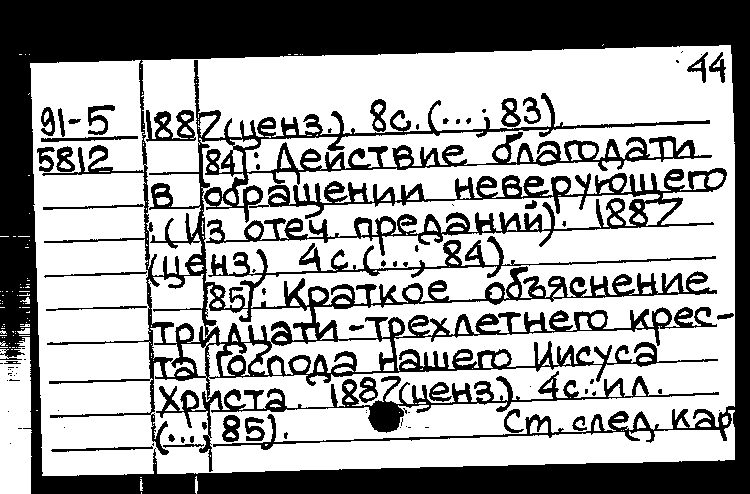 44
91-5 1887 (ценз.). 8с. (...; 83).
5812 [84]: Действие благодати
в обращении неверующего
: (Из отеч. преданий). 1887
(ценз.). 4с. (...; 84).
[85]: Краткое объяснение
тридцати-трехлетнего крес-
та Господа нашего Иисуса
Христа. 1887 (ценз.). 4с.: ил.
(...; 85). Ст. след. кар